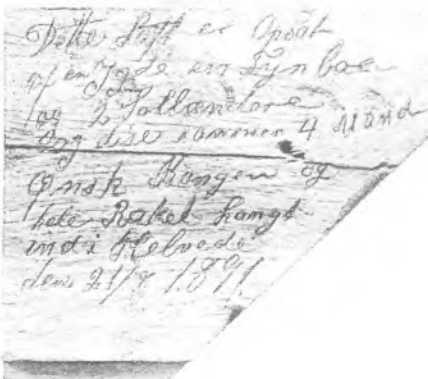 Dette Loft er Opsat
af en Jyde en Fynboe
og 2 Lollændere
Ong dise kammener 4 Mand
Ønsk Kongen og
hele Rakel hangt
ind i Helvede
den 21/8 1891